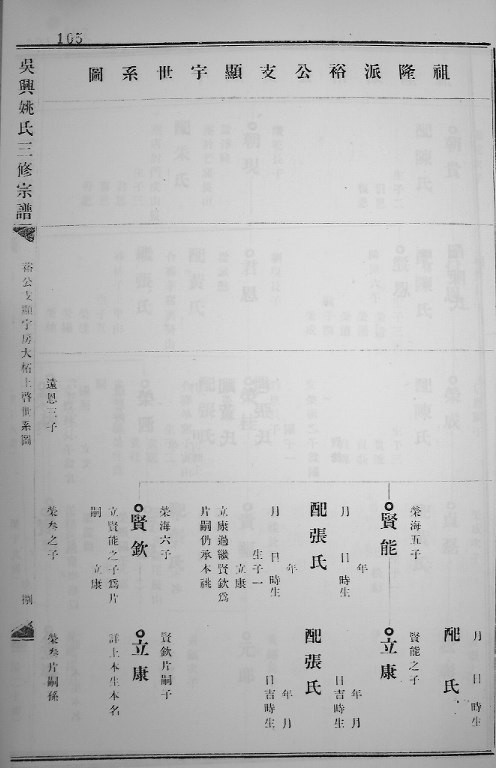 165
祖隆派裕公支顯宇世系圖
月 日 時生
配 氏
榮海五子
賢能
年
月 日時生
配張氏
年
月 日時生
生子一
立康
立康過繼賢欽爲
片嗣仍承本祧
榮海六子
賢欽
立賢能之子爲片
嗣 立康
賢能之子
立康
年 月
日吉時生
配張氏
年 月
日吉時生
賢欽片嗣子
立康
詳上本生本名
遠恩三子
榮叁之子
榮叁片嗣孫
吳興姚氏三修宗譜
裕公支顯宇房大柘上啓世系圖
捌